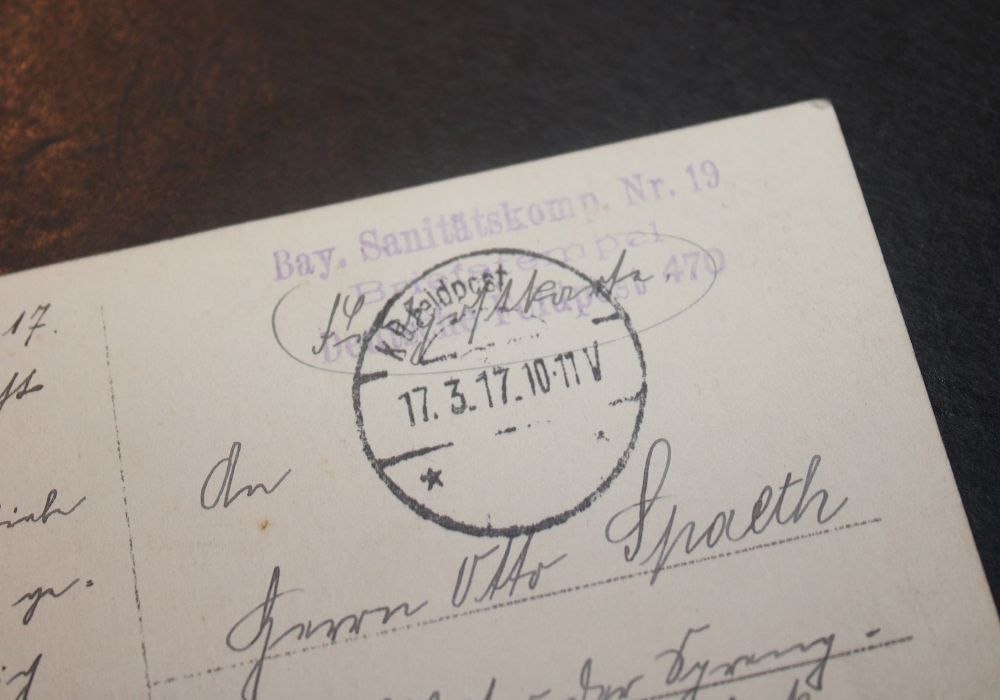 Bay. Sanitätskomp. Nr. 19
Briefstempel
Deutsche Feldpost 470
Feldpostkarte.
K.B. Feldpost
17. 3. 17. 10-11 V
17.
An
ge-
Herrn Otto Spaeth
der Spreng-